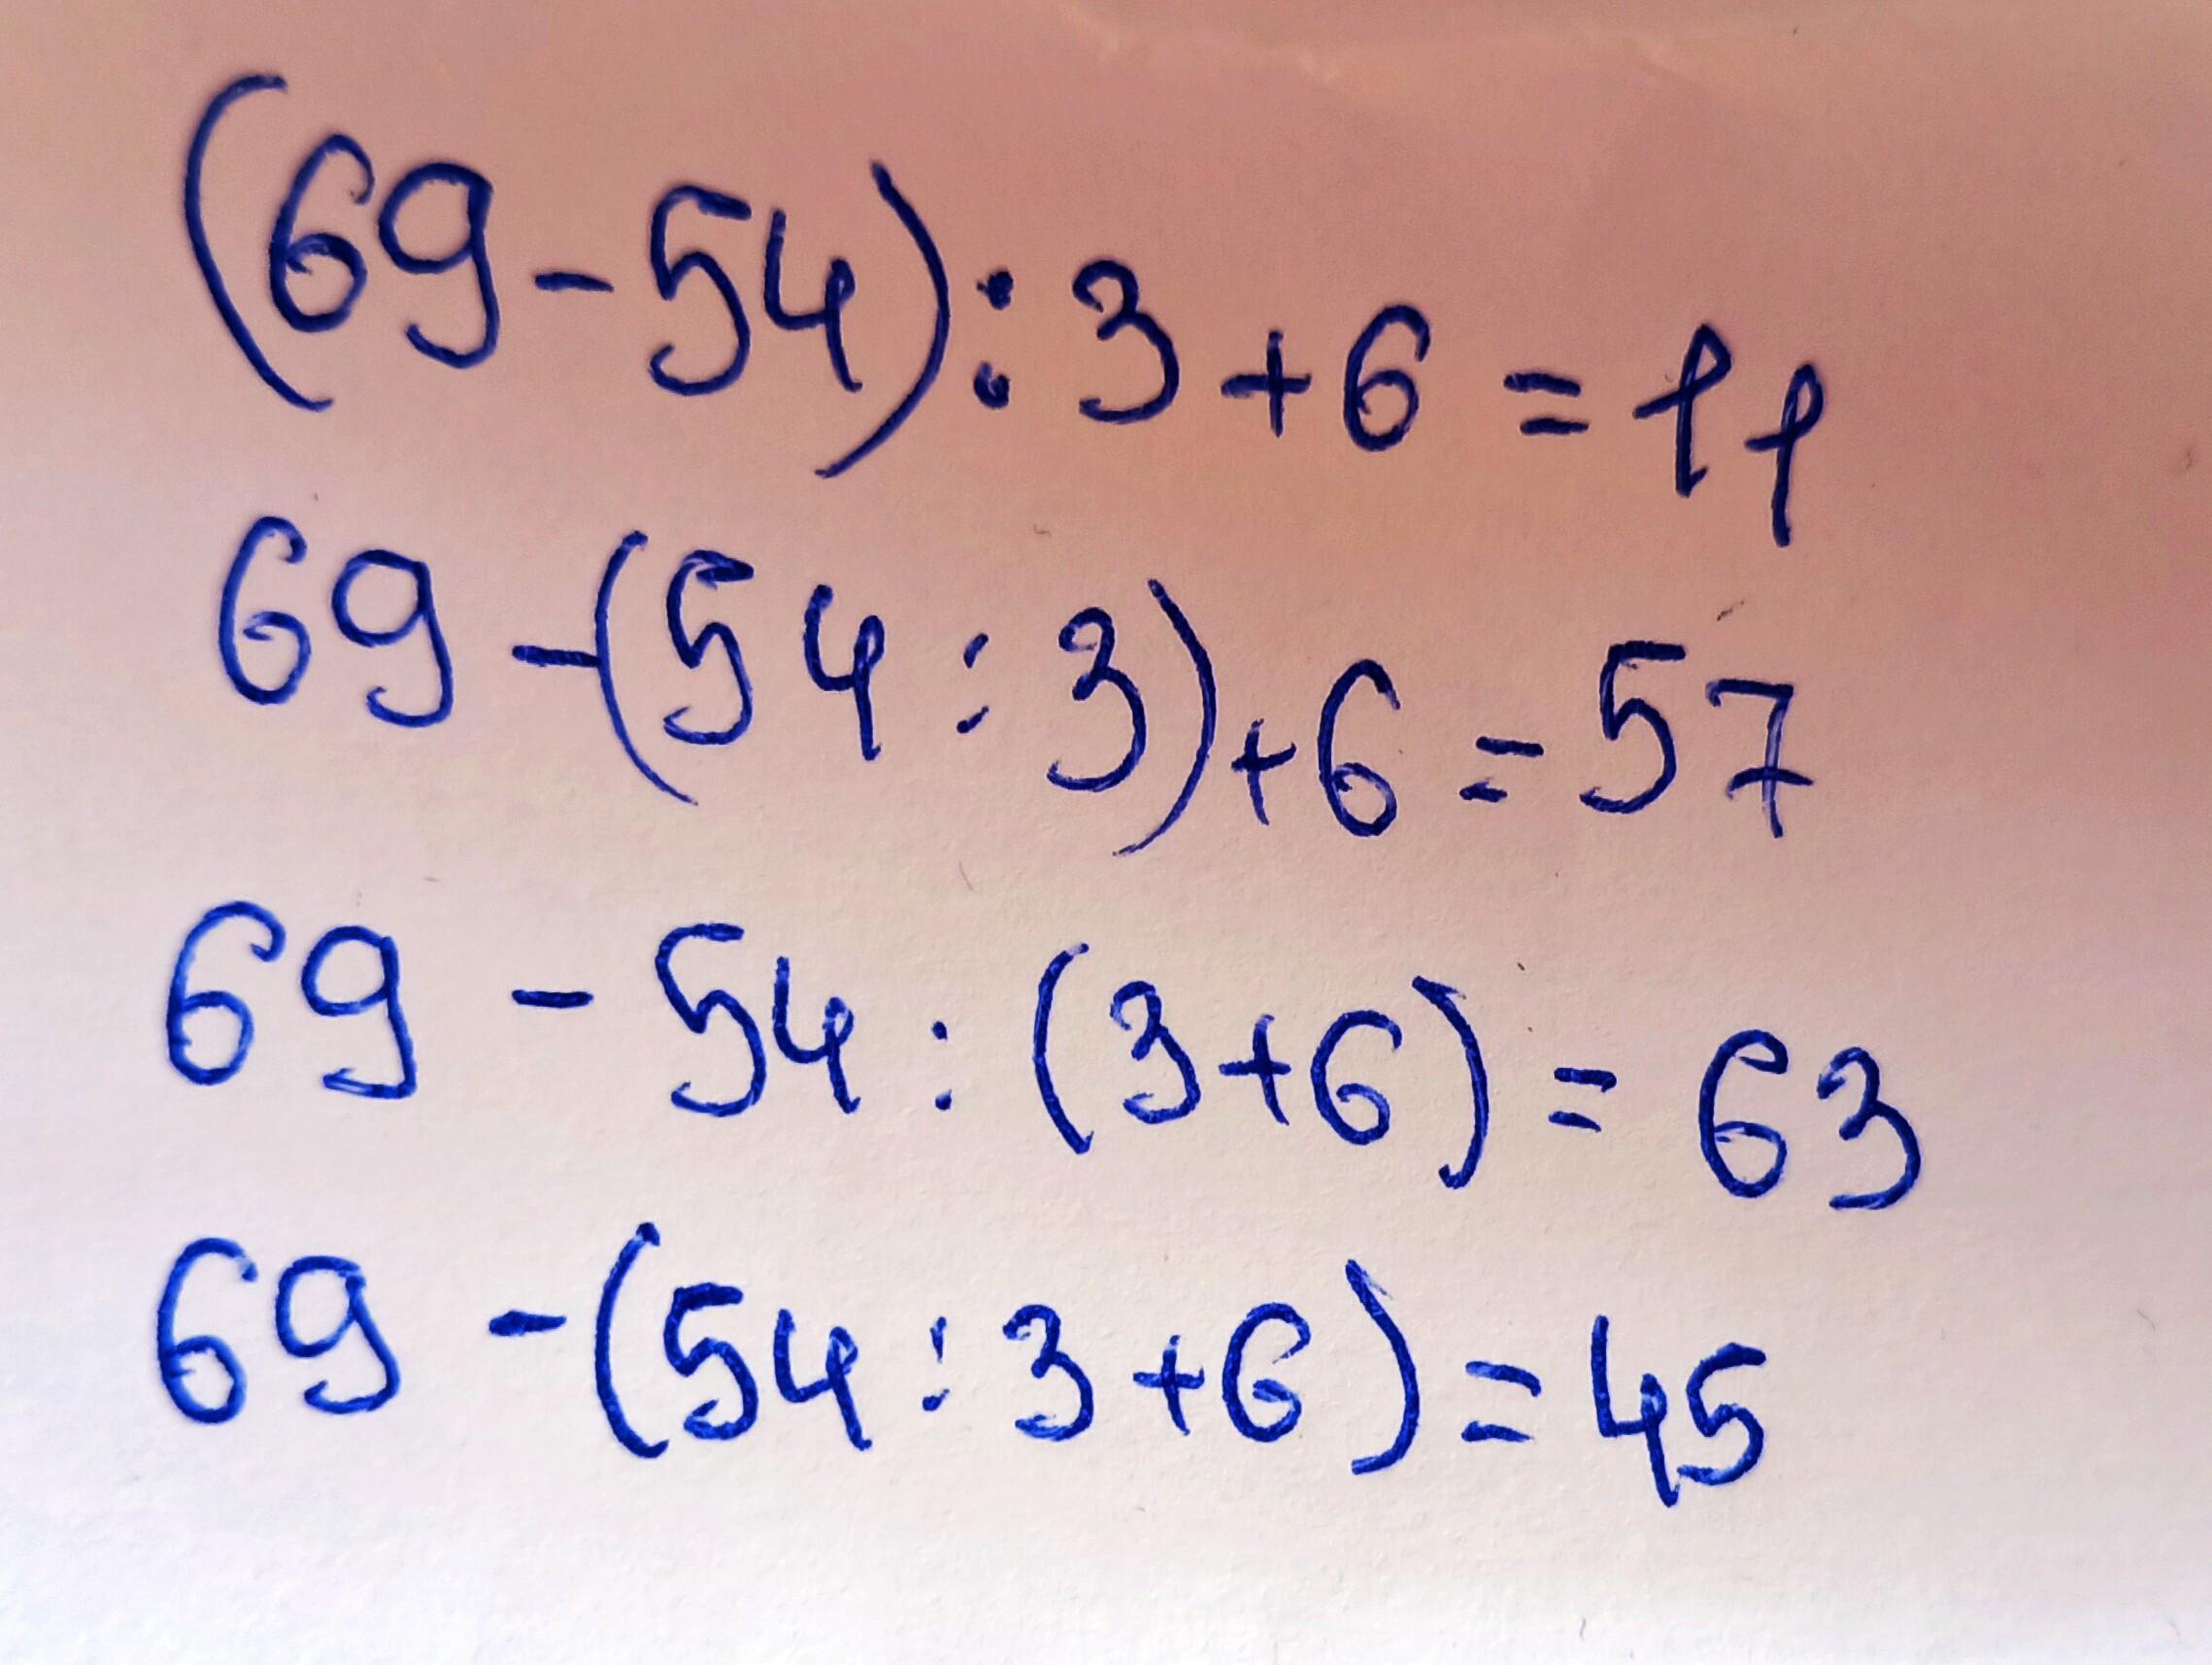 (69-54):3+6=11
69-(54:3)+6=57
69-54:(3+6)=63
69-(54:3+6)=45